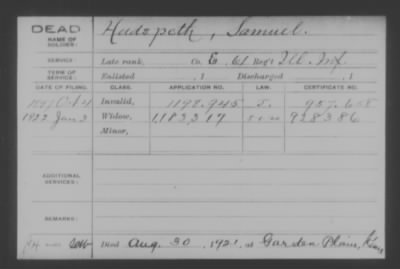 DEAD
NAME OF SOLDIER: Hudspeth, Samuel.
SERVICE: Late rank, Co. E, 61 Reg't Ill. Inf.
TERM OF SERVICE: Enlisted , 1 Discharged , 1
DATE OF FILING. CLASS. APPLICATION NO. LAW. CERTIFICATE NO.
1897 Oct 4 Invalid, 1198.945
1922 Jan 3 Widow, 1,183,319 928386
Minor,
ADDITIONAL SERVICES:
REMARKS:
Died Aug. 30, 1921, at Garden Plain, Kans